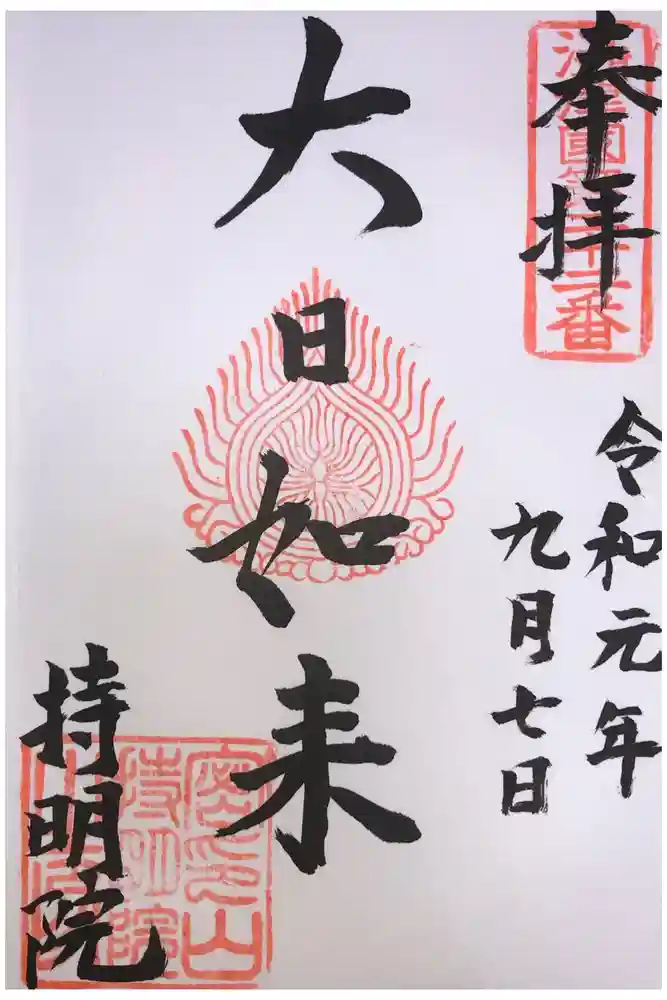 奉拝
令和元年
九月七日
大日如来
持明院